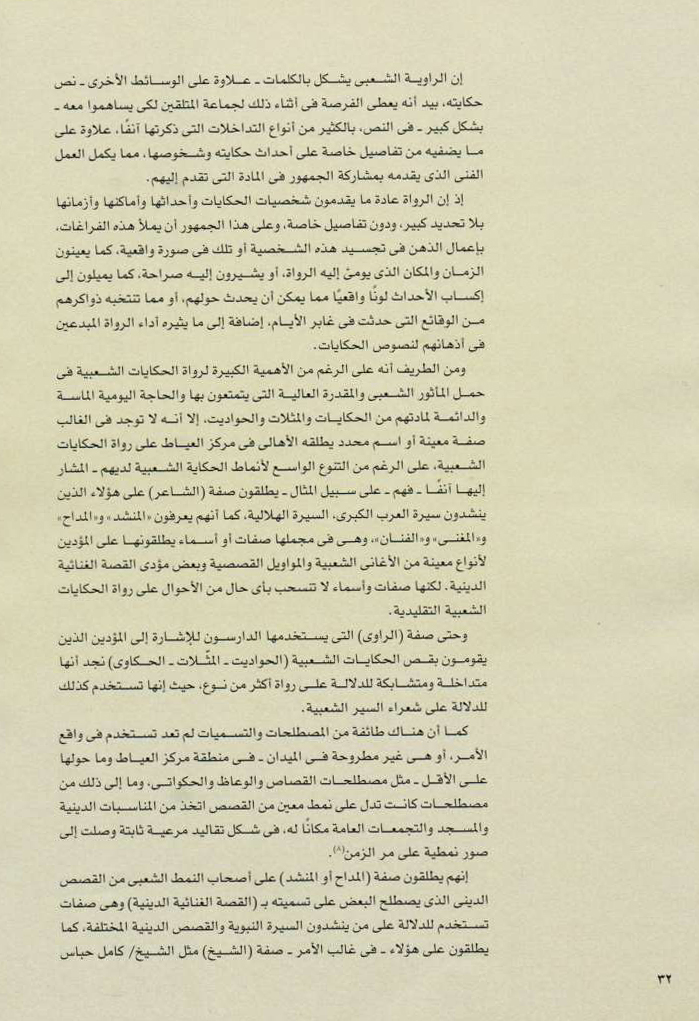 إن الراوية الشعبى يشكل بالكلمات ـ علاوة على الوسائط الأخرى ـ نص
حكايته، بيد أنه يعطى الفرصة فى أثناء ذلك لجماعة المتلقين لكى يساهموا معه ـ
بشكل كبير ـ فى النص، بالكثير من أنواع التداخلات التى ذكرتها آنفًا، علاوة على
ما يضفيه من تفاصيل خاصة على أحداث حكايته وشخوصها، مما يكمل العمل
الفنى الذى يقدمه بمشاركة الجمهور فى المادة التى تقدم إليهم.
إذ إن الرواة عادة ما يقدمون شخصيات الحكايات وأحداثها وأماكنها وأزمانها
بلا تحديد كبير، ودون تفاصيل خاصة، وعلى هذا الجمهور أن يملأ هذه الفراغات،
بإعمال الذهن فى تجسيد هذه الشخصية أو تلك فى صورة واقعية، كما يعينون
الزمان والمكان الذى يومئ إليه الرواة، أو يشيرون إليه صراحة، كما يميلون إلى
إكساب الأحداث لونًا واقعيًا مما يمكن أن يحدث حولهم، أو مما تنتخبه ذواكرهم
من الوقائع التى حدثت فى غابر الأيام، إضافة إلى ما يثيره أداء الرواة المبدعين
فى أذهانهم لنصوص الحكايات.
ومن الطريف أنه على الرغم من الأهمية الكبيرة لرواة الحكايات الشعبية فى
حمل المأثور الشعبى والمقدرة العالية التى يتمتعون بها والحاجة اليومية الماسة
والدائمة لمادتهم من الحكايات والمثلات والحواديت، إلا أنه لا توجد فى الغالب
صفة معينة أو اسم محدد يطلقه الأهالى فى مركز العياط على رواة الحكايات
الشعبية، على الرغم من التنوع الواسع لأنماط الحكاية الشعبية لديهم ـ المشار
إليها آنفًا ـ فهم ـ على سبيل المثال ـ يطلقون صفة (الشاعر) على هؤلاء الذين
ينشدون سيرة العرب الكبرى، السيرة الهلالية، كما أنهم يعرفون «المنشد» و«المداح»
و«المغنى» و«الفنان»، وهى فى مجملها صفات أو أسماء يطلقونها على المؤدين
لأنواع معينة من الأغانى الشعبية والمواويل القصصية وبعض مؤدى القصة الغنائية
الدينية. لكنها صفات وأسماء لا تنسحب بأى حال من الأحوال على رواة الحكايات
الشعبية التقليدية.
وحتى صفة (الراوى) التى يستخدمها الدارسون للإشارة إلى المؤدين الذين
يقومون بقص الحكايات الشعبية (الحواديت ـ المثّلات ـ الحكاوى) نجد أنها
متداخلة ومتشابكة للدلالة على رواة أكثر من نوع، حيث إنها تستخدم كذلك
للدلالة على شعراء السير الشعبية.
كما أن هناك طائفة من المصطلحات والتسميات لم تعد تستخدم فى واقع
الأمر، أو هى غير مطروحة فى الميدان ـ فى منطقة مركز العياط وما حولها
على الأقل ـ مثل مصطلحات القصاص والوعاظ والحكواتى، وما إلى ذلك من
مصطلحات كانت تدل على نمط معين من القصص اتخذ من المناسبات الدينية
والمسجد والتجمعات العامة مكانًا له، فى شكل تقاليد مرعية ثابتة وصلت إلى
صور نمطية على مر الزمن(٨).
إنهم يطلقون صفة (المداح أو المنشد) على أصحاب النمط الشعبى من القصص
الدينى الذى يصطلح البعض على تسميته بـ (القصة الغنائية الدينية) وهى صفات
تستخدم للدلالة على من ينشدون السيرة النبوية والقصص الدينية المختلفة، كما
يطلقون على هؤلاء ـ فى غالب الأمر ـ صفة (الشيخ) مثل الشيخ/ كامل حباس
٣٢